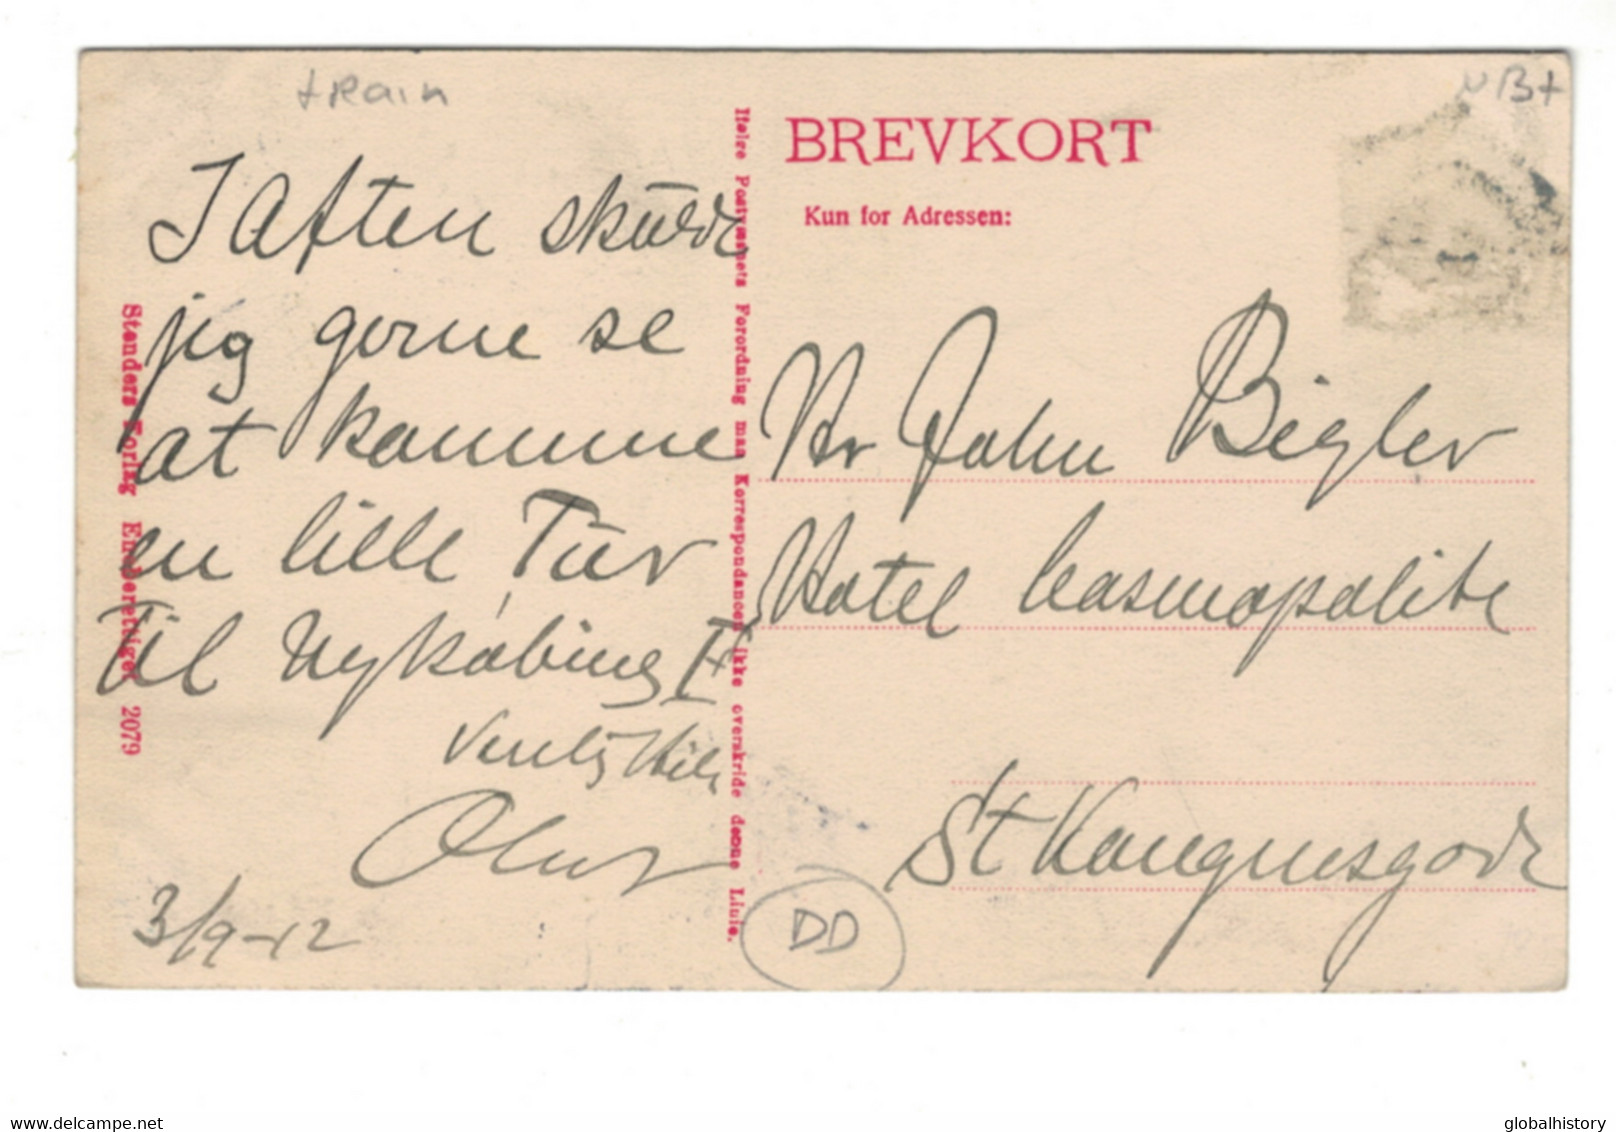 train
UB+
BREVKORT
Kun for Adressen:
I Aften skulde
jeg gerne se
at komme
en lille Tur
Til Nykøbing F
Venlig Hils
Oluf
3/9-12
Stenders Forlag Eneberettiget 2079
Ifølge Postvæsnets Forordning maa Korrespondancen ikke overskride denne Linie.
Hr John Bigler
Hotel Cosmopolite
St Kongensgade
DD
delcampe.net
globalhistory